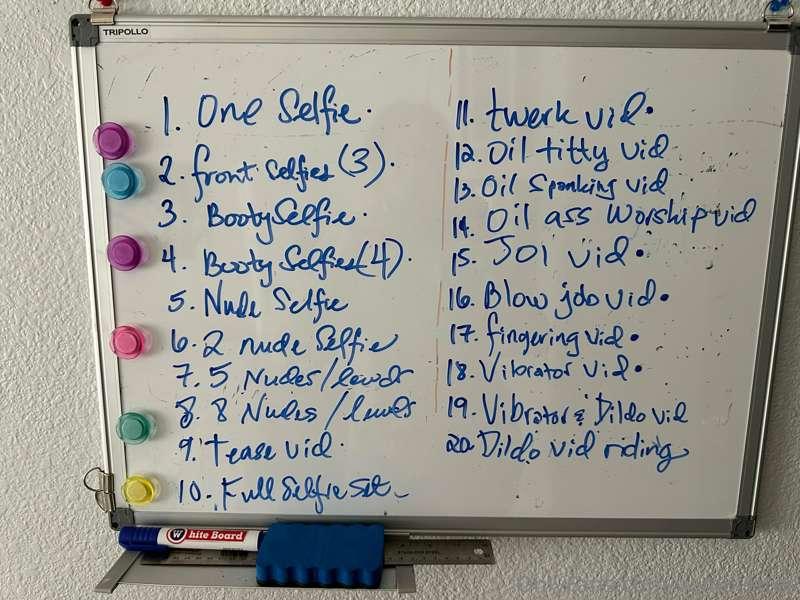 TRIPOLLO
1. One Selfie.
2. front selfies (3).
3. Booty Selfie.
4. Booty Selfies (4).
5. Nude Selfie
6. 2 nude Selfie
7. 5 Nudes/lewds
8. 8 Nudes/lewds
9. Tease vid.
10. Full Selfie Set
11. twerk vid.
12. Oil titty vid
13. Oil Spanking vid
14. Oil ass Worship vid
15. JOI vid.
16. Blow job vid.
17. fingering vid.
18. Vibrator vid.
19. Vibrator & Dildo vid
20. Dildo vid riding
White Board
STAINLESS STEEL